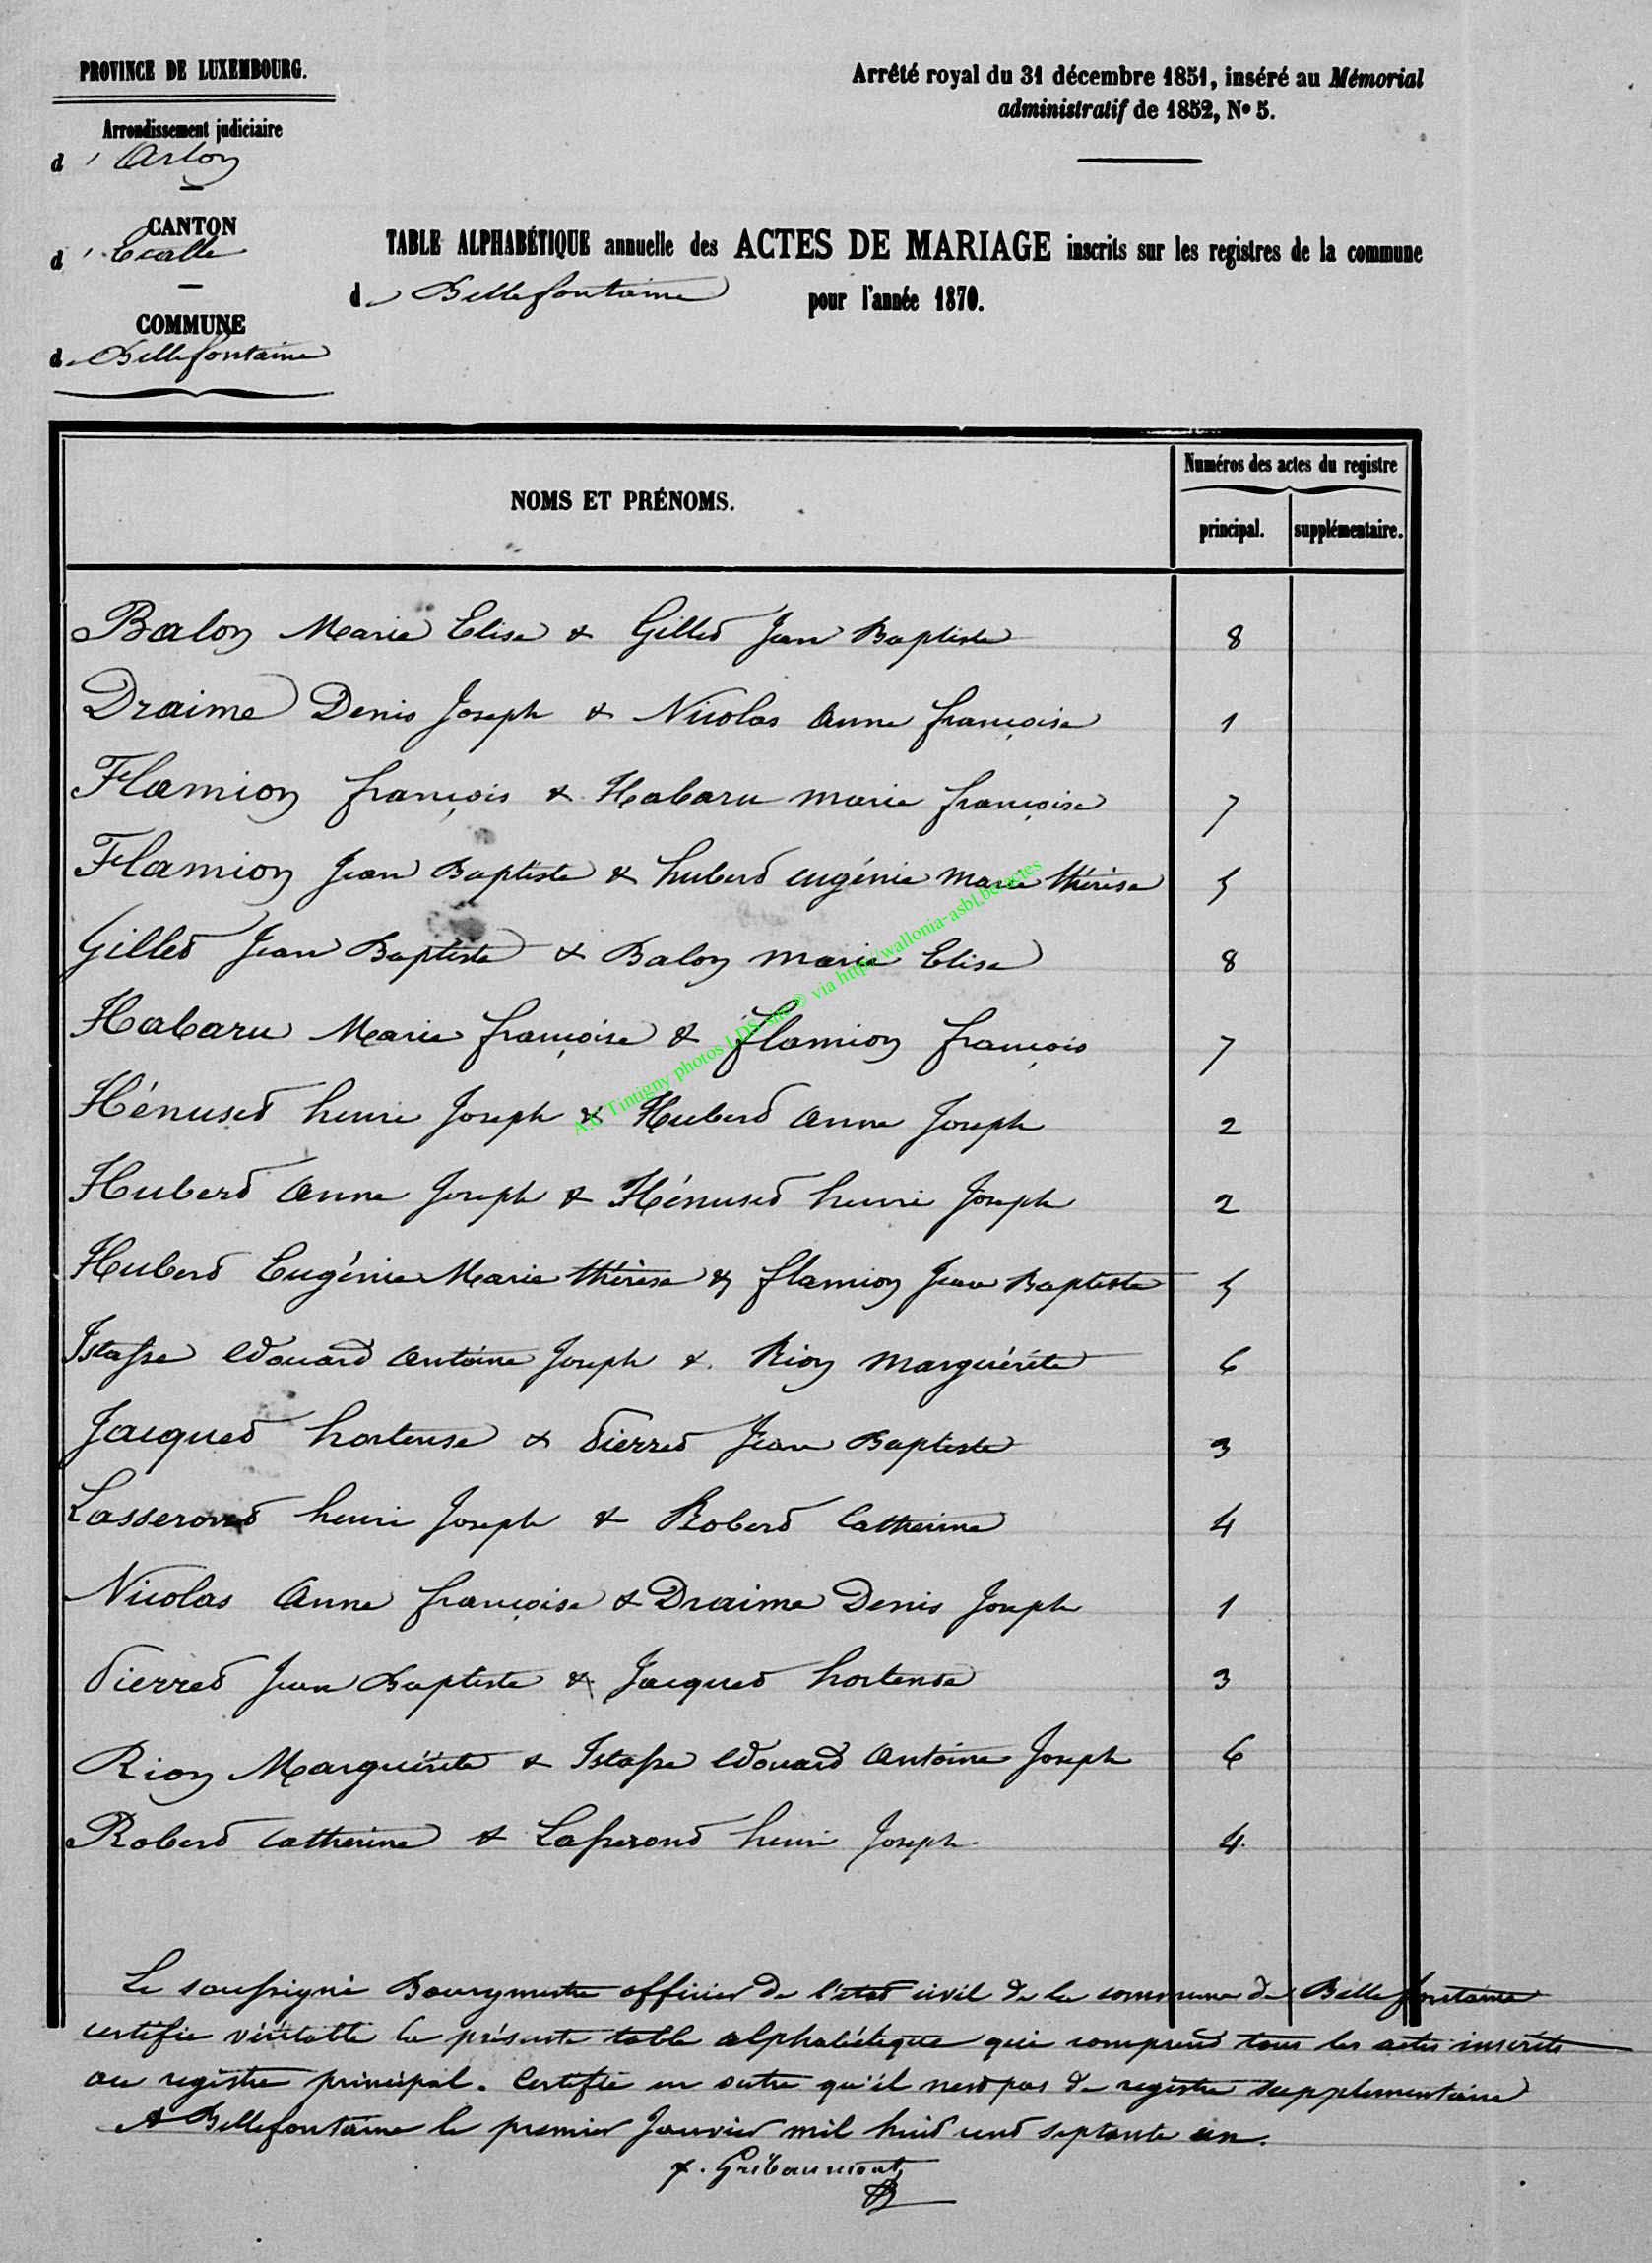 PROVINCE DE LUXEMBOURG.
Arrondissement judiciaire
d'Arlon
CANTON
d'Etalle
COMMUNE
de Bellefontaine
Arrêté royal du 31 décembre 1851, inséré au Mémorial
administratif de 1852, No 5.
TABLE ALPHABÉTIQUE annuelle des ACTES DE MARIAGE inscrits sur les registres de la commune
de Bellefontaine pour l'année 1870.
NOMS ET PRÉNOMS.
Numéros des actes du registre
principal. supplémentaire.
Balon Marie Elise & Gillet Jean Baptiste 8
Draime Denis Joseph & Nicolas Anne françoise 1
Flamion françois & Habaru marie françoise 7
Flamion Jean Baptiste & hubert eugénie Marie thérèse 5
Gillet Jean Baptiste & Balon marie Elise 8
Habaru Marie françoise & flamion françois 7
Hénuset henri Joseph & Hubert Anne Joseph 2
Hubert Anne Joseph & Hénuset henri Joseph 2
Hubert Eugénie Marie thérèse & flamion Jean Baptiste 5
Istasse Edouard Antoine Joseph & Rion Marguérite 6
Jacquet hortense & Pierret Jean Baptiste 3
Lasseront henri Joseph & Robert Catherine 4
Nicolas Anne françoise & Draime Denis Joseph 1
Pierret Jean Baptiste & Jacquet hortense 3
Rion Marguérite & Istasse Edouard Antoine Joseph 6
Robert Catherine & Lasseront henri Joseph 4
A.C. Tintigny photos LDS via http://wallonia-asbl.be/actes
Le soussigné Bourgmestre officier de l'état civil de la commune de Bellefontaine
certifie véritable la présente table alphabétique qui comprend tous les actes inscrits
au registre principal. Certifie en outre qu'il n'est pas de registre supplementaire
A Bellefontaine le premier Janvier mil huit cent septante un.
Gribaumont